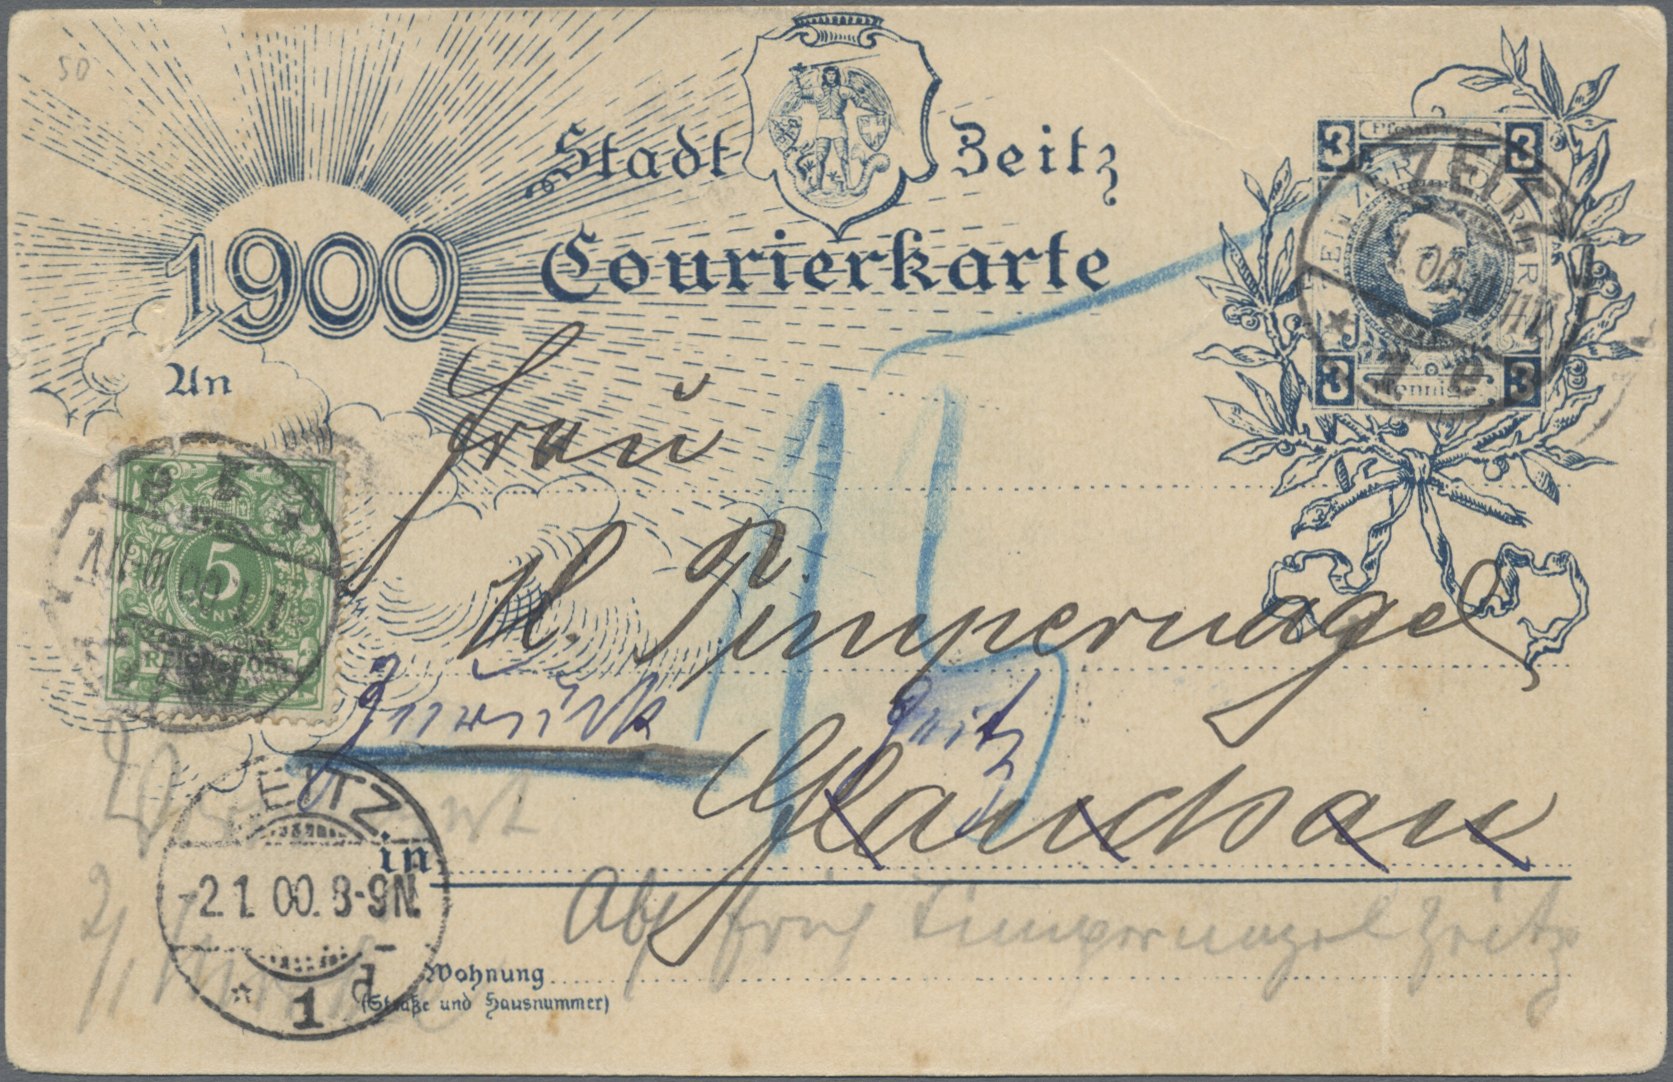 50
Stadt Zeitz
Courierkarte
1900
An
3 3
3 Pfennige 3
ZEITZ
1.1.00.
5
REICHSPOST
Frau
P.
H. Pimpernagel
zurück Zeitz
Glauchau
15
in
ZEITZ
-2.1.00.8-9N.
* 1 d
Abs. Pimpernagel Zeitz
Wohnung
(Straße und Hausnummer)